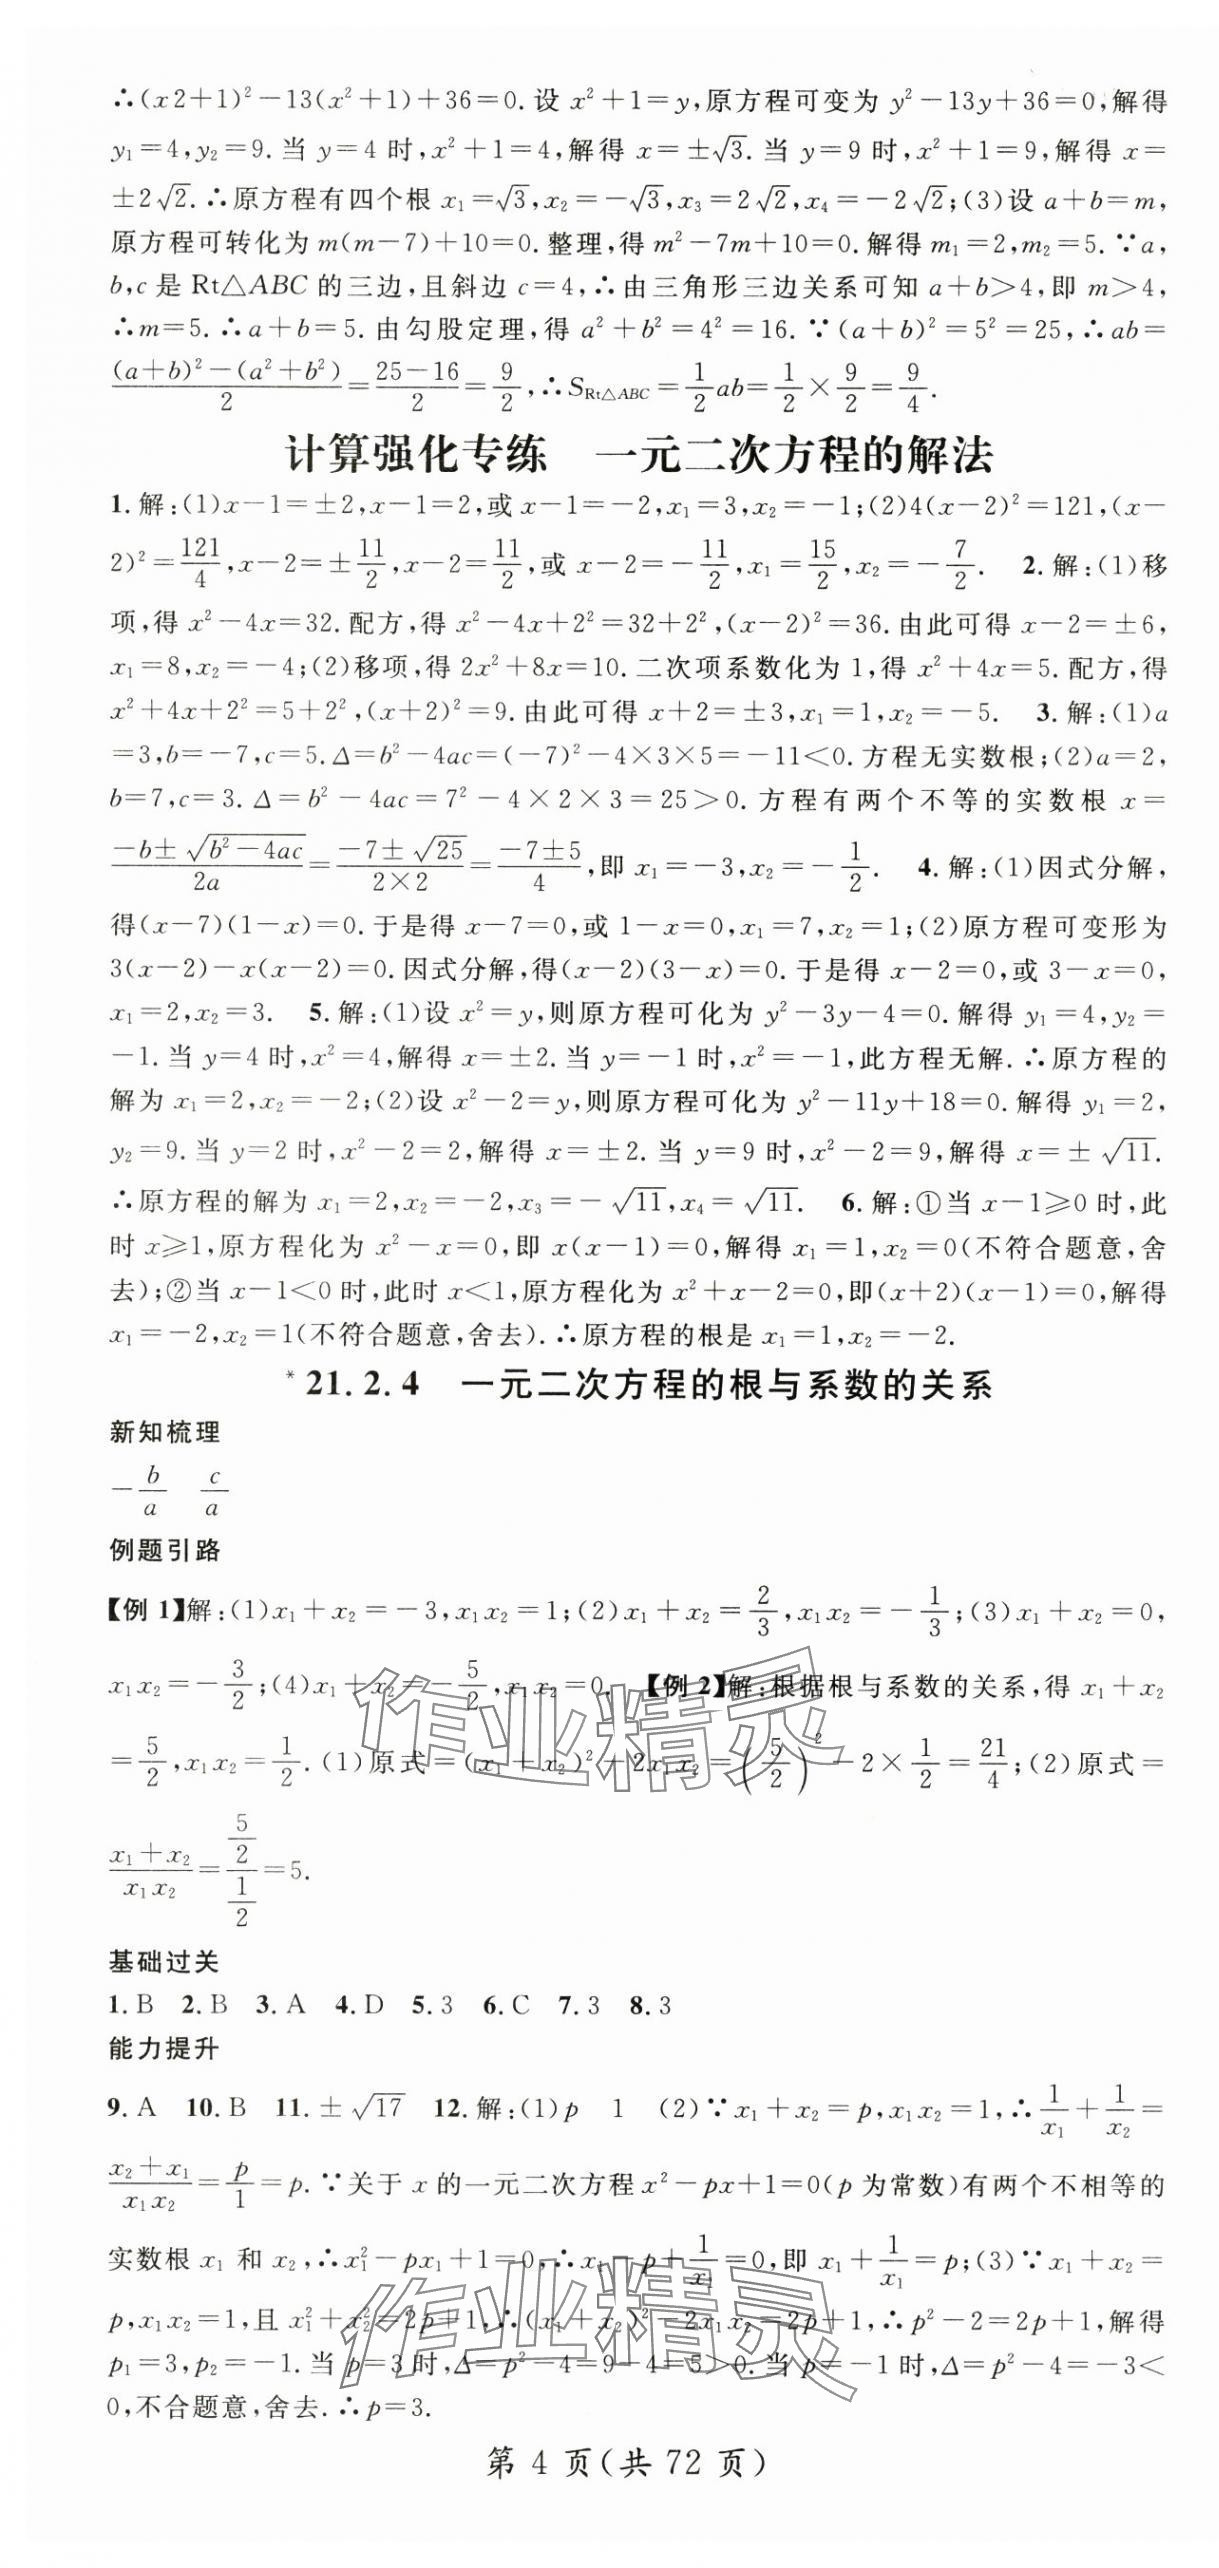 ∴(x2+1)²-13(x²+1)+36=0.设 x²+1=y,原方程可变为 y²-13y+36=0,解得
y₁=4,y₂=9.当 y=4 时,x²+1=4,解得 x=±√3.当 y=9 时,x²+1=9,解得 x=
±2√2.∴原方程有四个根 x₁=√3,x₂=-√3,x₃=2√2,x₄=-2√2;(3)设 a+b=m,
原方程可转化为 m(m-7)+10=0.整理,得 m²-7m+10=0.解得 m₁=2,m₂=5.∵a,
b,c 是 Rt△ABC 的三边,且斜边 c=4,∴由三角形三边关系可知 a+b>4,即 m>4,
∴m=5.∴a+b=5.由勾股定理,得 a²+b²=4²=16.∵(a+b)²=5²=25,∴ab=
((a+b)²-(a²+b²))/2=(25-16)/2=9/2,∴S_Rt△ABC=1/2 ab=1/2×9/2=9/4.
计算强化专练 一元二次方程的解法
1.解:(1)x-1=±2,x-1=2,或 x-1=-2,x₁=3,x₂=-1;(2)4(x-2)²=121,(x-
2)²=121/4,x-2=±11/2,x-2=11/2,或 x-2=-11/2,x₁=15/2,x₂=-7/2. 2.解:(1)移
项,得 x²-4x=32.配方,得 x²-4x+2²=32+2²,(x-2)²=36.由此可得 x-2=±6,
x₁=8,x₂=-4;(2)移项,得 2x²+8x=10.二次项系数化为 1,得 x²+4x=5.配方,得
x²+4x+2²=5+2²,(x+2)²=9.由此可得 x+2=±3,x₁=1,x₂=-5. 3.解:(1)a
=3,b=-7,c=5.Δ=b²-4ac=(-7)²-4×3×5=-11<0.方程无实数根;(2)a=2,
b=7,c=3.Δ=b²-4ac=7²-4×2×3=25>0.方程有两个不等的实数根 x=
(-b±√(b²-4ac))/2a=(-7±√25)/(2×2)=(-7±5)/4,即 x₁=-3,x₂=-1/2. 4.解:(1)因式分解,
得(x-7)(1-x)=0.于是得 x-7=0,或 1-x=0,x₁=7,x₂=1;(2)原方程可变形为
3(x-2)-x(x-2)=0.因式分解,得(x-2)(3-x)=0.于是得 x-2=0,或 3-x=0,
x₁=2,x₂=3. 5.解:(1)设 x²=y,则原方程可化为 y²-3y-4=0.解得 y₁=4,y₂=
-1.当 y=4 时,x²=4,解得 x=±2.当 y=-1 时,x²=-1,此方程无解.∴原方程的
解为 x₁=2,x₂=-2;(2)设 x²-2=y,则原方程可化为 y²-11y+18=0.解得 y₁=2,
y₂=9.当 y=2 时,x²-2=2,解得 x=±2.当 y=9 时,x²-2=9,解得 x=±√11.
∴原方程的解为 x₁=2,x₂=-2,x₃=-√11,x₄=√11. 6.解:①当 x-1≥0 时,此
时 x≥1,原方程化为 x²-x=0,即 x(x-1)=0,解得 x₁=1,x₂=0(不符合题意,舍
去);②当 x-1<0 时,此时 x<1,原方程化为 x²+x-2=0,即(x+2)(x-1)=0,解得
x₁=-2,x₂=1(不符合题意,舍去).∴原方程的根是 x₁=1,x₂=-2.
*21.2.4 一元二次方程的根与系数的关系
新知梳理
-b/a c/a
例题引路
【例 1】解:(1)x₁+x₂=-3,x₁x₂=1;(2)x₁+x₂=2/3,x₁x₂=-1/3;(3)x₁+x₂=0,
x₁x₂=-3/2;(4)x₁+x₂=-5/2,x₁x₂=0. 【例 2】解:根据根与系数的关系,得 x₁+x₂
=5/2,x₁x₂=1/2.(1)原式=(x₁+x₂)²-2x₁x₂=(5/2)²-2×1/2=21/4;(2)原式=
(x₁+x₂)/(x₁x₂)=(5/2)/(1/2)=5.
基础过关
1.B 2.B 3.A 4.D 5.3 6.C 7.3 8.3
能力提升
9.A 10.B 11.±√17 12.解:(1)p 1 (2)∵x₁+x₂=p,x₁x₂=1,∴1/x₁+1/x₂=
(x₂+x₁)/(x₁x₂)=p/1=p.∵关于 x 的一元二次方程 x²-px+1=0(p 为常数)有两个不相等的
实数根 x₁ 和 x₂,∴x₁²-px₁+1=0,∴x₁-p+1/x₁=0,即 x₁+1/x₁=p;(3)∵x₁+x₂=
p,x₁x₂=1,且 x₁²+x₂²=2p+1,∴(x₁+x₂)²-2x₁x₂=2p+1,∴p²-2=2p+1,解得
p₁=3,p₂=-1.当 p=3 时,Δ=p²-4=9-4=5>0.当 p=-1 时,Δ=p²-4=-3<
0,不合题意,舍去.∴p=3.
第 4 页(共 72 页)
作业精灵
作业精灵